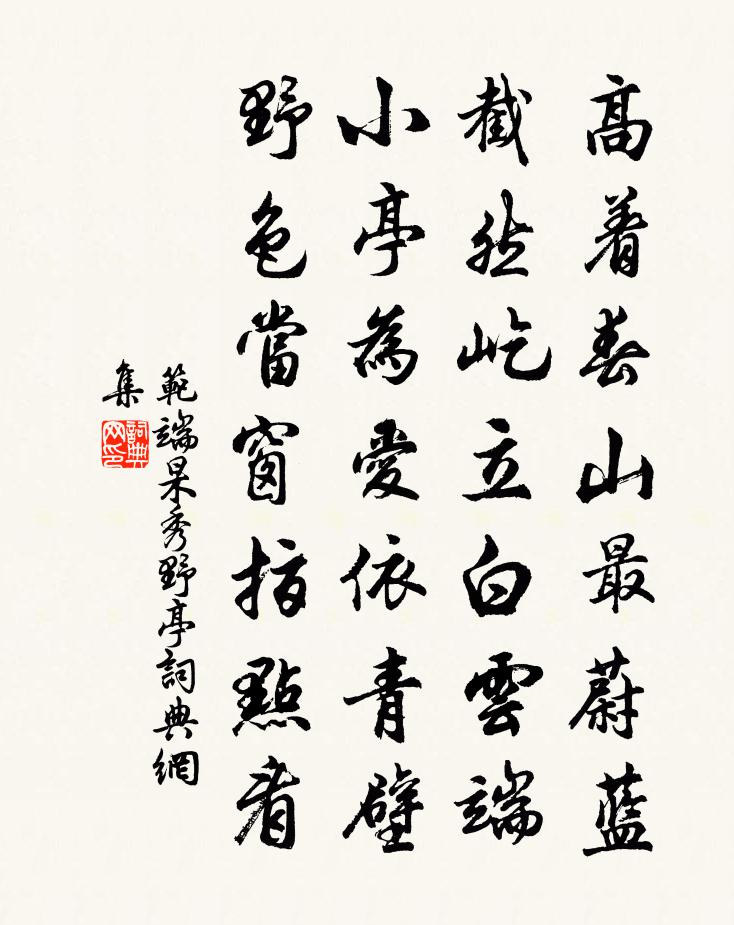 高着春山最蔚藍
截然屹立白雲端
小亭為愛依青壁
野色當窗指點看
範端杲秀野亭詞典網
集
詞典網印